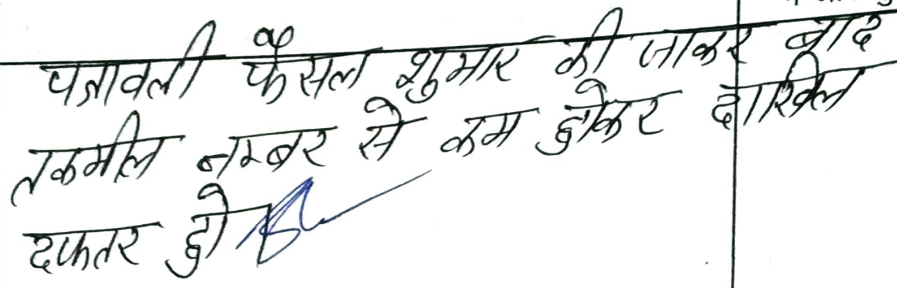 पत्रावली फैसल शुमार की जाकर बाद
तकमील नम्बर से कम होकर दाखिल
दफ्तर हो